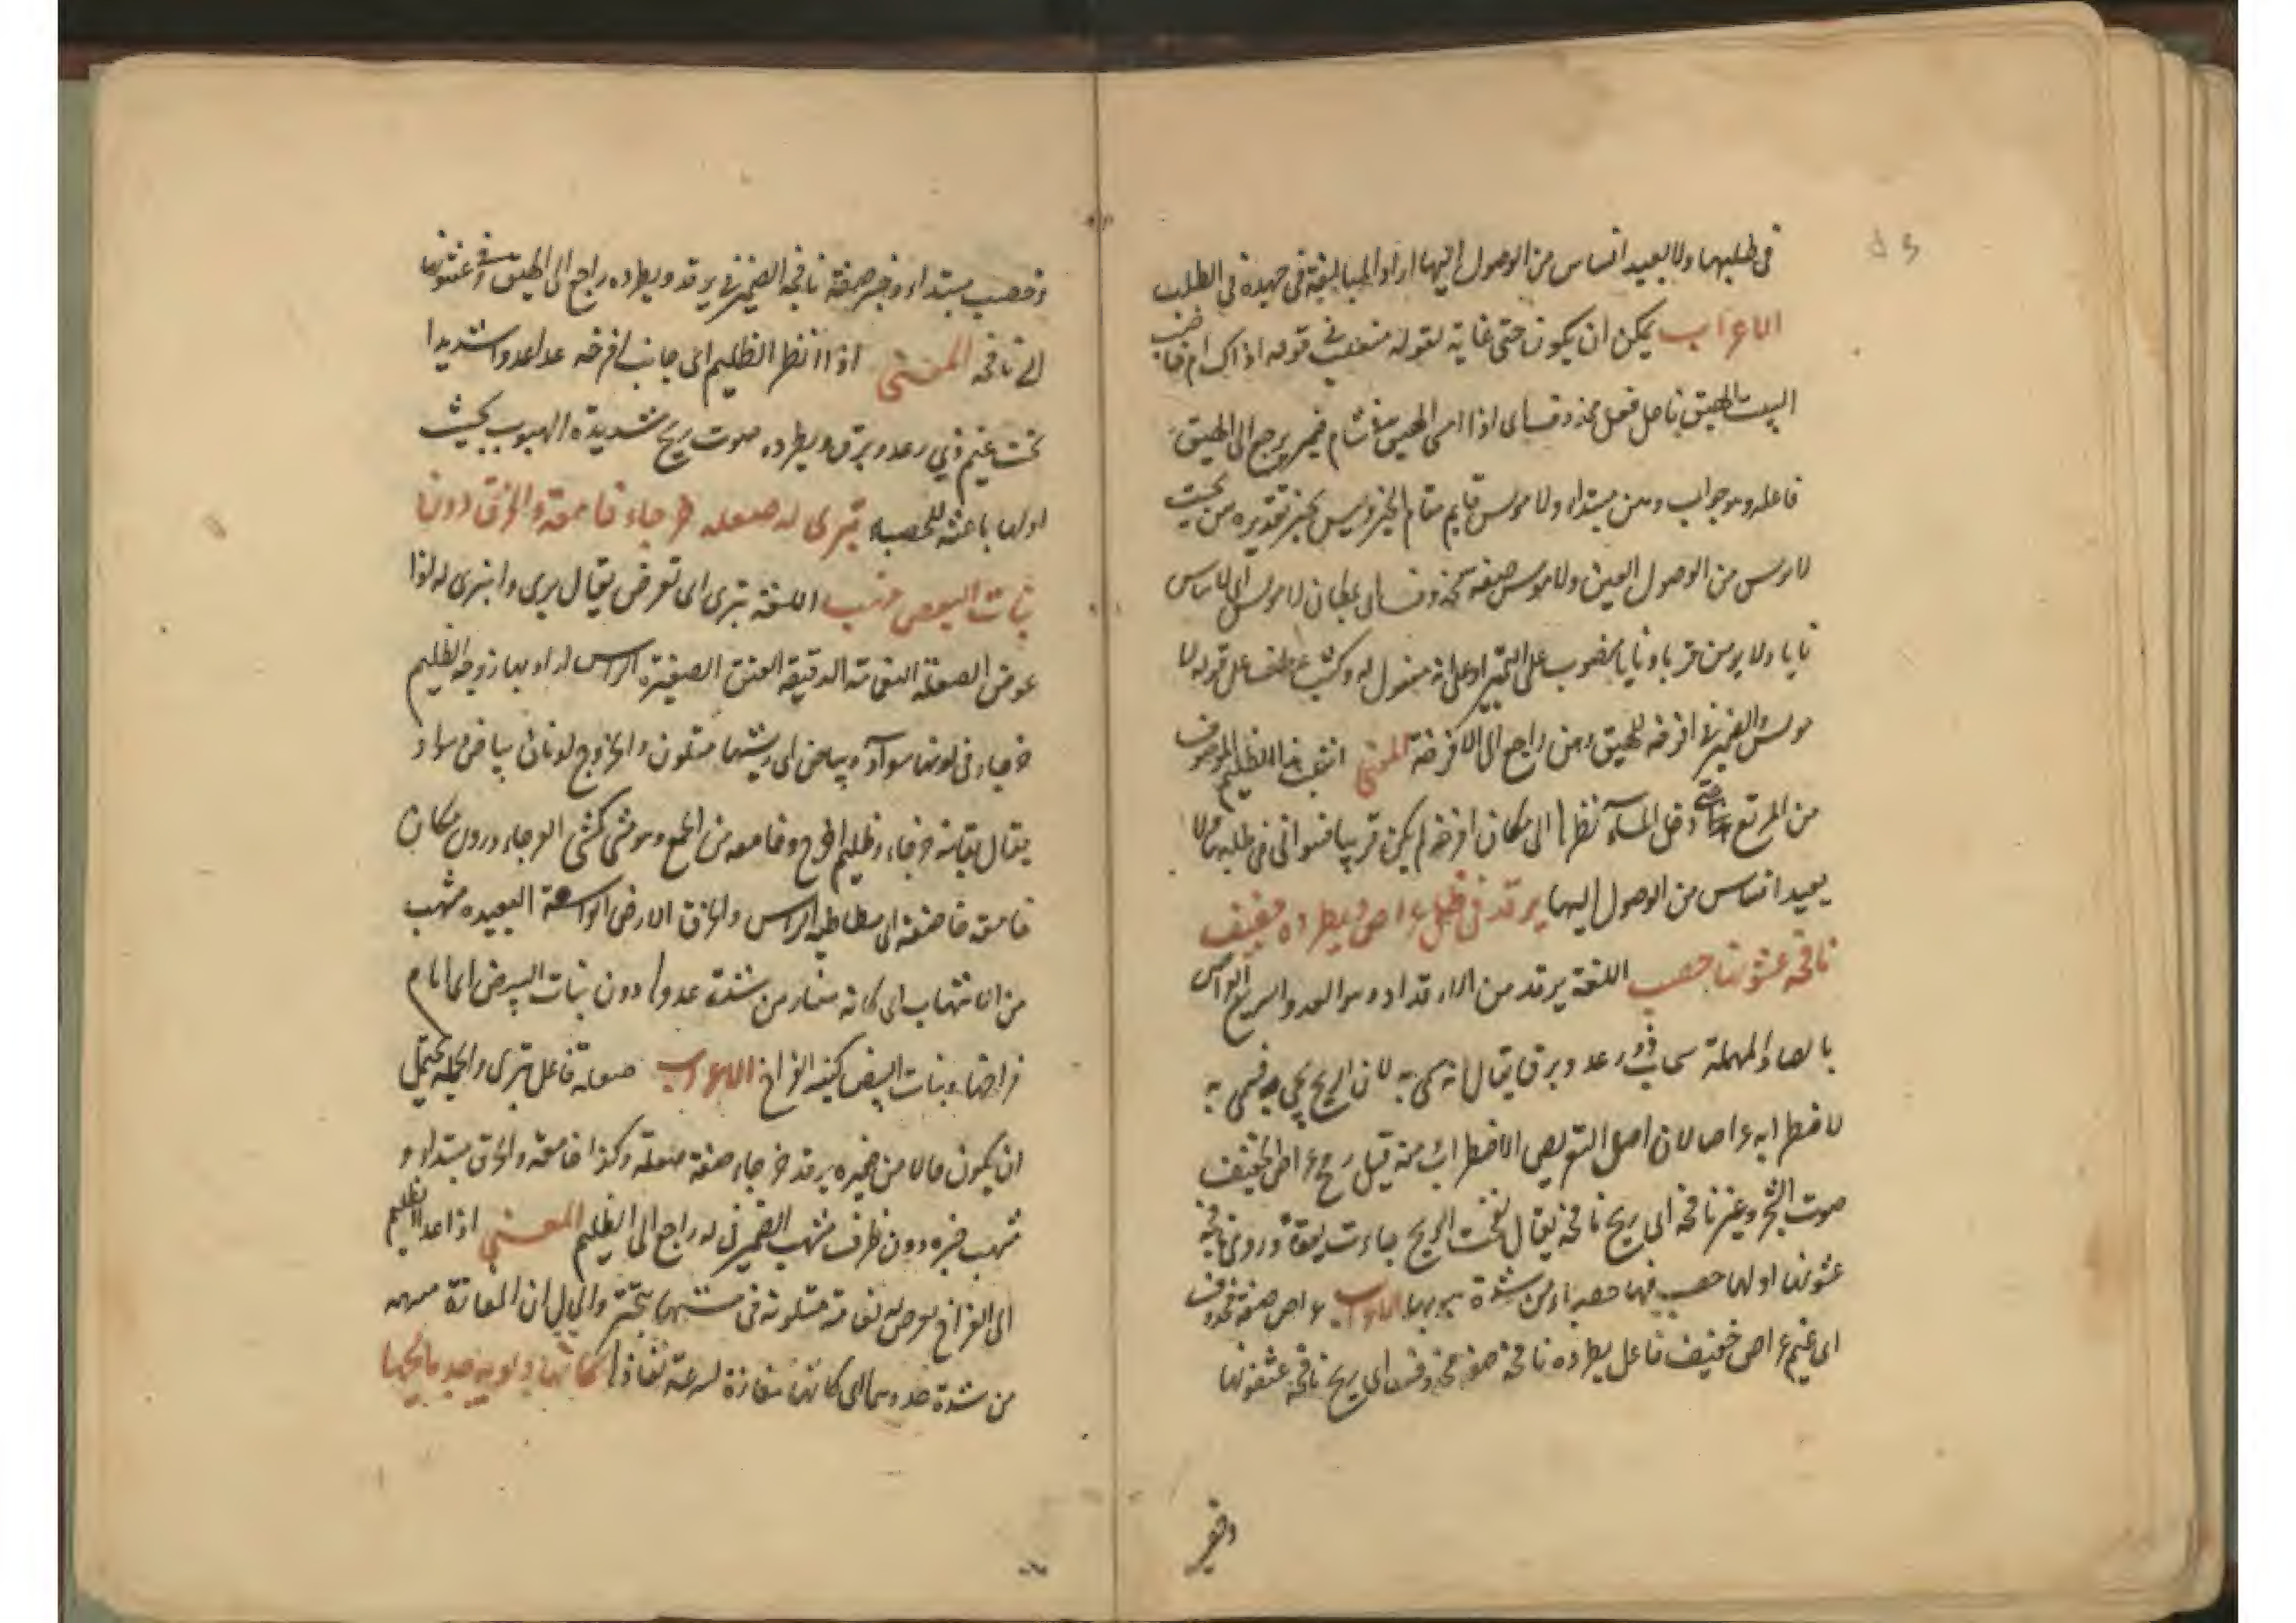 فى طلبهما ولا لبعيد انساس من الوصول اليها اراد المبالغة فى جهده فى الطلب
الاعراب يمكن ان يكون حتى غاية لقوله منقلب فى قوله اذاك ام خاضب
البيت الهيق فاعل فعل محذوف اى اذا امسى الهيق شام فيه يرجع الى الهيق
فاعله وهو جواب وهن مبتداء ولا مويس قايم مقام الخبر وليس بخبر تقديره من بحيث
لا مويس من الوصول العين ولا مويس صفة محذوف اى بمكان لا مويس اى لا ياس
نايا ولا يرمن قربا ونايا منصوب على التميز او على انه مفعول له وكثب عطف على قوله لا
مويس والضمير فى افرخه للهيق وهن راجع الى الافرخة المعنى هذا الظليم الموصوف
من المرتع دخل المساء نظر الى مكان افرخه لم يكن قريبا فتوانى فى طلبهم ولا
بعيد انساس من الوصول اليها يرقد فى ظل عراص ويطرده حفيف
نافجة عثنونها حصب اللغة يرقد من الارقداد وهو العدو السريع العراص
بالصاد المهملة سحاب ذو رعد وبرق يقال انه سمى به لان الريح به فسمى به
لاضطرابه عراصا لان اصل التعريص الاضطراب منه قيل رمح عراص الحفيف
صوت الشجر وغيره نافجة اى ريح نافجة يقال نفجت الريح جاءت بغتة وروى نافجة
عثنونها اولها حصب فيها حصباء من شدة هبوبها الاعراب عراص صفة محذوف
اى غيم عراص حفيف فاعل يطرده نافجة صفة محذوف اى ريح نافجة عثنونها
وحصب
وحصب مبتداء وخبر صفة نافجة الضمير فى يرقد ويطرده راجع الى الهيق وفى عثنونها
الى نافجة المعنى اذا نظر الظليم الى جانب افرخه عدا عدوا شديدا
تحت غيم ذى رعد وبرق ويطرده صوت ريح شديدة الهبوب بحيث
اولها باعثه للحصباء تبرى له صعلة خرجاء خاضعة والخرق دون
بنات البيض منتهب اللغة تبرى اى تعرض يقال برى وانبرى له اذا
عرض الصعلة النعامة الدقيقة العنق الصغيرة الراس اراد بها زوجة الظليم
خرجاء فى لونها سواد وبياض اى ريشها متلون والخروج لونان بياض وسواد
يقال نعامة خرجاء وظليم اخرج وخاضعه من وهو مشى كمشى العرجاء ودون مكان
خاضعة اى مطاطية الراس والخرق الارض الواسعة البعيده منتهب
من الانتهاب اى كانه من شدة عدوها دون بنات البيض اى امام
فراخها وبنات البيض كنيه الفراخ الاعراب صعلة فاعل تبرى والجمله يحتمل
ان يكون حالا من ضميره يرقد خرجاء صفة صعلة وكذا خاضعة والخرق مبتداء و
منتهب خبره ودون ظرف منتهب الضمير فى له راجع الى الظليم المعنى اذا عدا الظليم
الى الفراخ يعرض له نعامة متلونة فى مشيها تبختر والحال ان المفازة منتهبه
من شدة عدوهما اى كانها مفازة لسرعة نفاذها كانها دلو بير جد ماتحها